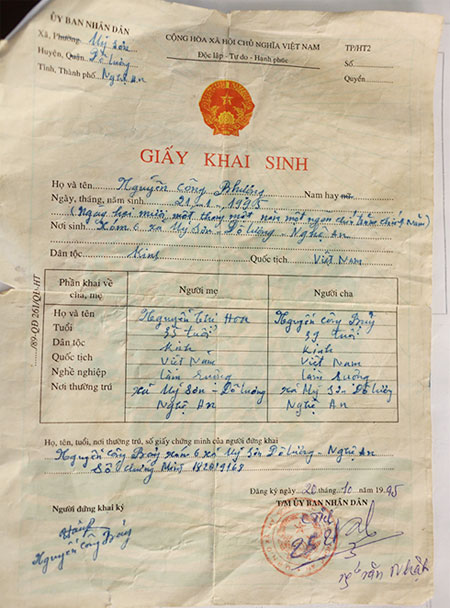 ỦY BAN NHÂN DÂN
Xã, Phường Mỹ Sơn
Huyện, Quận Đô Lương
Tỉnh, Thành phố Nghệ An
CỘNG HÒA XÃ HỘI CHỦ NGHĨA VIỆT NAM
Độc lập - Tự do - Hạnh phúc
TP/HT2
Số
Quyển
GIẤY KHAI SINH
Họ và tên Nguyễn Công Phượng Nam hay nữ
Ngày, tháng, năm sinh 21-1-1995
(Ngày hai mươi một tháng một năm một ngàn chín trăm chín năm)
Nơi sinh Xóm 6 xã Mỹ Sơn - Đô Lương - Nghệ An
Dân tộc Kinh Quốc tịch Việt Nam
Phần khai về cha, mẹ Người mẹ Người cha
Họ và tên Nguyễn Thị Hoa Nguyễn Công Bảy
Tuổi 35 tuổi tuổi
Dân tộc Kinh Kinh
Quốc tịch Việt Nam Việt Nam
Nghề nghiệp Làm ruộng Làm ruộng
Nơi thường trú xã Mỹ Sơn - Đô Lương xã Mỹ Sơn Đô Lương
Nghệ An Nghệ An
Họ, tên, tuổi, nơi thường trú, số giấy chứng minh của người đứng khai
Nguyễn Công Bảy xóm 6 xã Mỹ Sơn Đô Lương - Nghệ An
Số chứng minh
Đăng ký ngày 20 tháng 10 năm 1995
Người đứng khai ký
T/M ỦY BAN NHÂN DÂN
Nguyễn Công Bảy
/89-QĐ 261/QĐ-HT